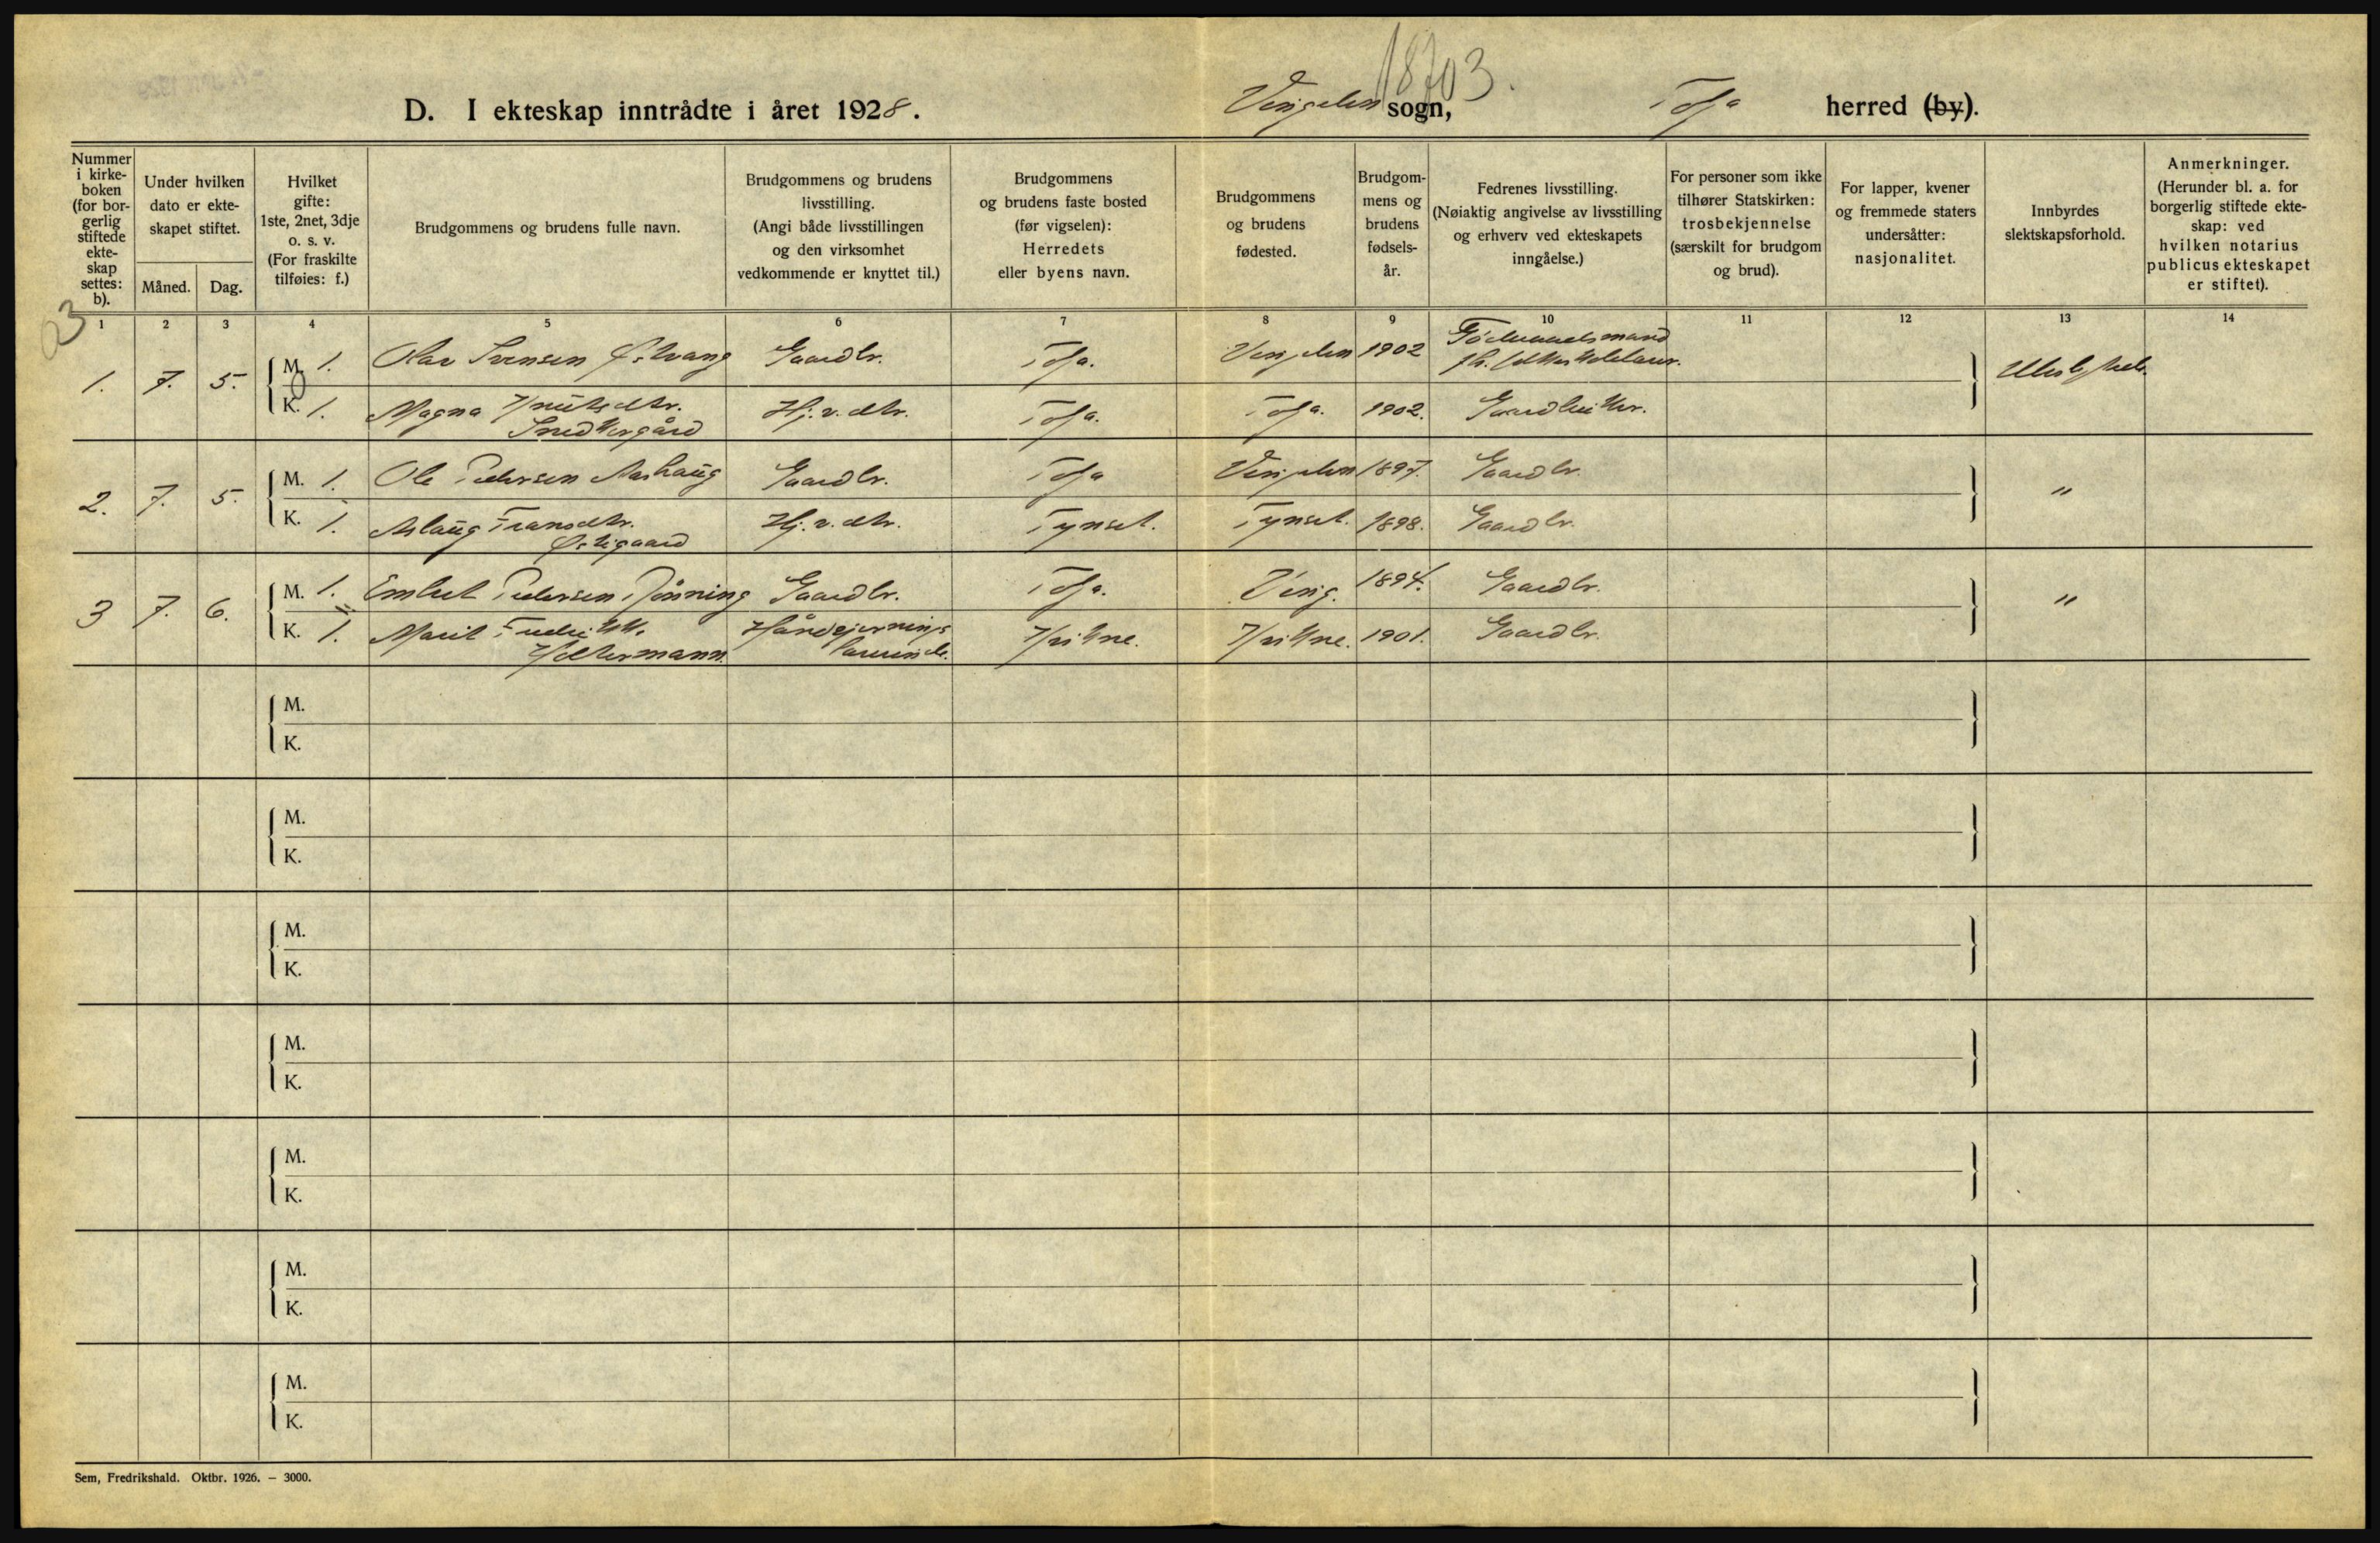 18703.
D. I ekteskap inntrådte i året 1928. Vingelen sogn, Tolga herred (by).
Nummer i kirkeboken (for borgerlig stiftede ekteskap settes: b).
Under hvilken dato er ekteskapet stiftet.
Måned. Dag.
Hvilket gifte: 1ste, 2net, 3dje o. s. v. (For fraskilte tilføies: f.)
Brudgommens og brudens fulle navn.
Brudgommens og brudens livsstilling. (Angi både livsstillingen og den virksomhet vedkommende er knyttet til.)
Brudgommens og brudens faste bosted (før vigselen): Herredets eller byens navn.
Brudgommens og brudens fødested.
Brudgommens og brudens fødselsår.
Fedrenes livsstilling. (Nøiaktig angivelse av livsstilling og erhverv ved ekteskapets inngåelse.)
For personer som ikke tilhører Statskirken: trosbekjennelse (særskilt for brudgom og brud).
For lapper, kvener og fremmede staters undersåtter: nasjonalitet.
Innbyrdes slektskapsforhold.
Anmerkninger. (Herunder bl. a. for borgerlig stiftede ekteskap: ved hvilken notarius publicus ekteskapet er stiftet).
1 2 3 4 5 6 7 8 9 10 11 12 13 14
1. 7. 5. M. 1. Olav Svensen Østvang Gaardbr. Tolga. Vingelen 1902
K. 1. Magna Knutsdtr. Snedkergård Hj.v. dtr. Tolga. Tolga. 1902. Gaardbruker.
2. 7. 5. M. 1. Ole Pedersen Aashaug Gaardbr. Tolga Vingelen 1897. Gaardbr. "
K. 1. Aslaug Fransdtr. Østigaard Hj.v. dtr. Tynset. Tynset. 1898. Gaardbr.
3 7. 6. M. 1. Embret Pedersen Rønning Gaardbr. Tolga. Ving. 1894. Gaardbr. "
K. 1. Marit Holtermann. Håndgjernings Kvikne. Kvikne. 1901. Gaardbr.
M.
K.
M.
K.
M.
K.
M.
K.
M.
K.
M.
K.
M.
K.
Sem, Fredrikshald. Oktbr. 1926. — 3000.